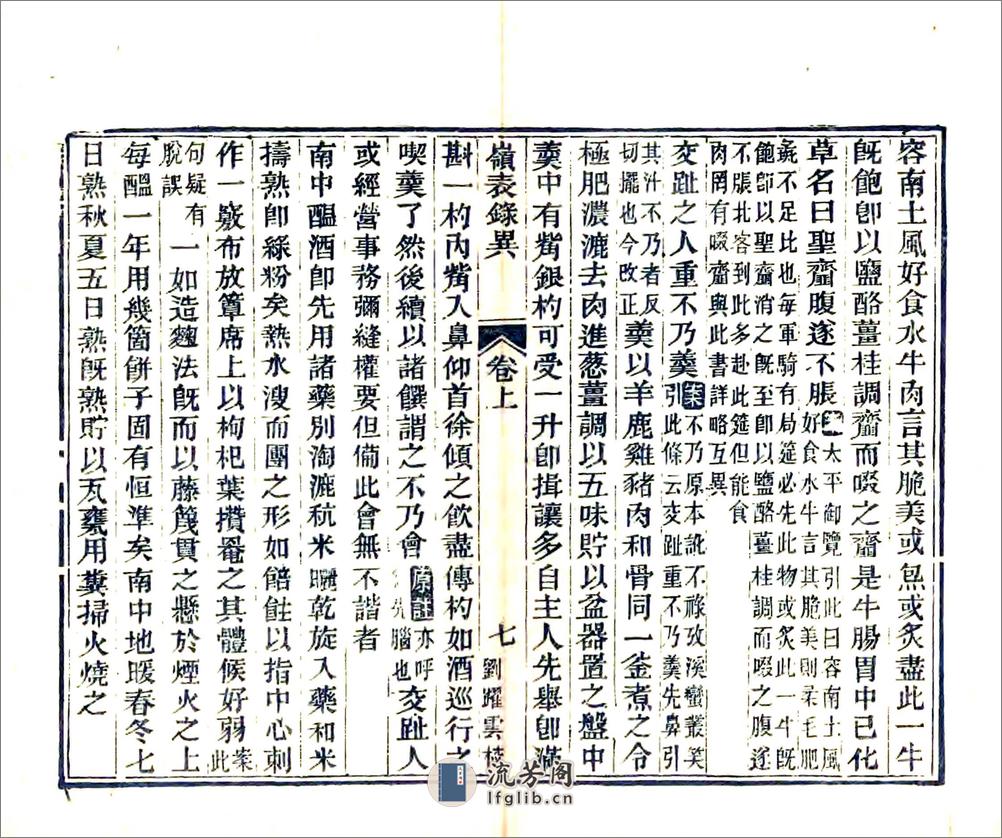 容南土風好食水牛肉言其脆美或魚或炙盡此一牛
旣飽卽以鹽酪薑桂調齏而啜之齏是牛腸胃中已化
草名曰聖齏腹遂不脹
太平御覽引此曰容南土風
好食水牛言其脆美則柔毛肥
彘不足比也每軍騎有局筵必先此物或炙此一牛旣
飽卽以聖齏消之旣至卽以鹽酪薑桂調而啜之腹遂
不脹北客到此多赴此筵但能食
肉罔有啜齏與此書詳畧互異
交趾之人重不乃羹
案不乃原本訛不祿攷溪蠻叢笑
引此條云交趾重不乃羹先鼻引
其汁不乃者反
切擺也今改正
羹以羊鹿雞豬肉和骨同一釜煮之令
極肥濃漉去肉進葱薑調以五味貯以盆器置之盤中
羹中有觜銀杓可受一升卽揖讓多自主人先舉卽滿
嶺表錄異 卷上 七 劉躍雲
斟一杓內觜入鼻仰首徐傾之飲盡傳杓如酒巡行之
喫羹了然後續以諸饌謂之不乃會
原註亦呼
先腦也
交趾人
或經營事務彌縫權要但備此會無不諧者
南中醞酒卽先用諸藥別淘漉秔米曬乾旋入藥和米
擣熟卽綠粉矣熱水溲而團之形如餢飳以指中心刺
作一竅布放簟席上以枸杞葉攢罨之其體候好弱
案此
句疑有
脫誤
一如造麴法旣而以藤篾貫之懸於煙火之上
每醞一年用幾箇餅子固有恒準矣南中地暖春冬七
日熟秋夏五日熟旣熟貯以瓦甕用糞掃火燒之
流芳阁
lfglib.cn